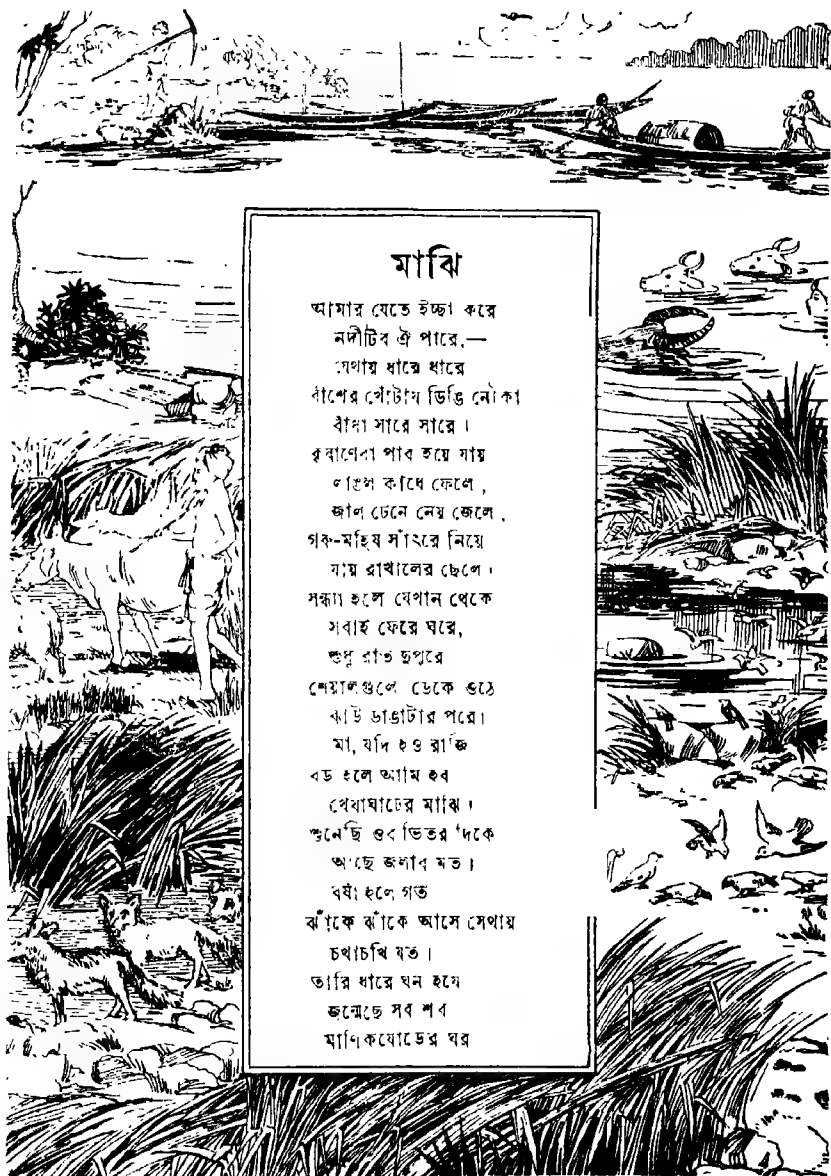 মাঝি
আমার যেতে ইচ্ছা করে
নদীটির ঐ পারে,—
যেথায় ধারে ধারে
বাঁশের খোঁটায় ডিঙি নৌকা
বাঁধা সারে সারে।
কৃষাণেরা পার হয়ে যায়
লাঙল কাঁধে ফেলে,
জাল টেনে নেয় জেলে,
গরু-মহিষ সাঁৎরে নিয়ে
যায় রাখালের ছেলে।
সন্ধ্যা হলে যেখান থেকে
সবাই ফেরে ঘরে,
শুধু রাত দুপুরে
শেয়ালগুলো ডেকে ওঠে
ঝাউ ডাঙাটার পরে।
মা, যদি হও রাজি
বড় হলে আমি হব
খেয়াঘাটের মাঝি।
শুনেছি ওর ভিতর দিকে
আছে জলার মত।
বর্ষা হলে গত
ঝাঁকে ঝাঁকে আসে সেথায়
চখাচখি যত।
তারি ধারে ঘন হয়ে
জন্মেছে সব শর
মাণিকযোড়ের ঘর